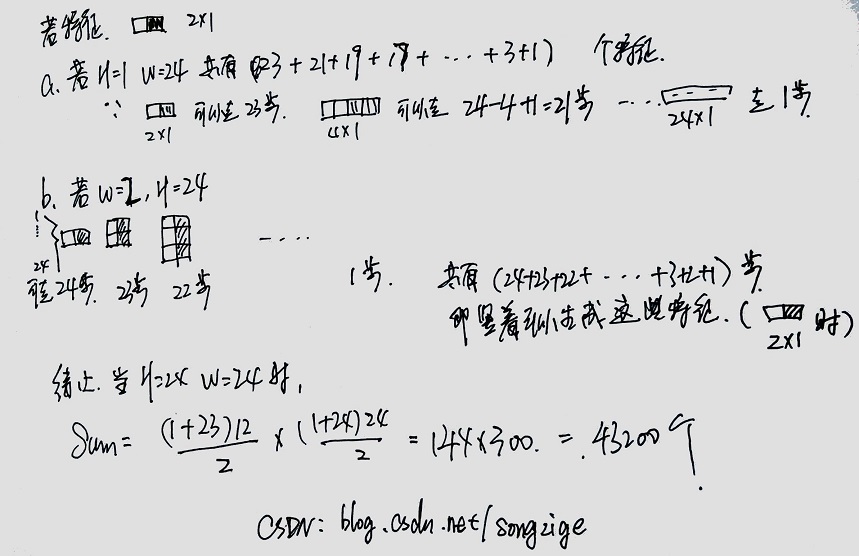 若特征. 2×1
a. 若 H=1 W=24 共有 (23+21+19+17+···+3+1) 个特征.
∵ 可以走 23步. 可以走 24-4+1=21步 ---- 走1步
2×1 4×1 24×1
b. 若 W=2, H=24
1
24
可走 24步. 23步 22步 ---- 1步. 共有 (24+23+22+···+3+2+1) 步
即竖着可以生成这些特征. ( 时)
2×1
综上. 当 H=24 W=24 时,
Sum = (1+23)12/2 × (1+24)24/2 = 144×300. = 43200个.
CSDN: blog.csdn.net/songzige